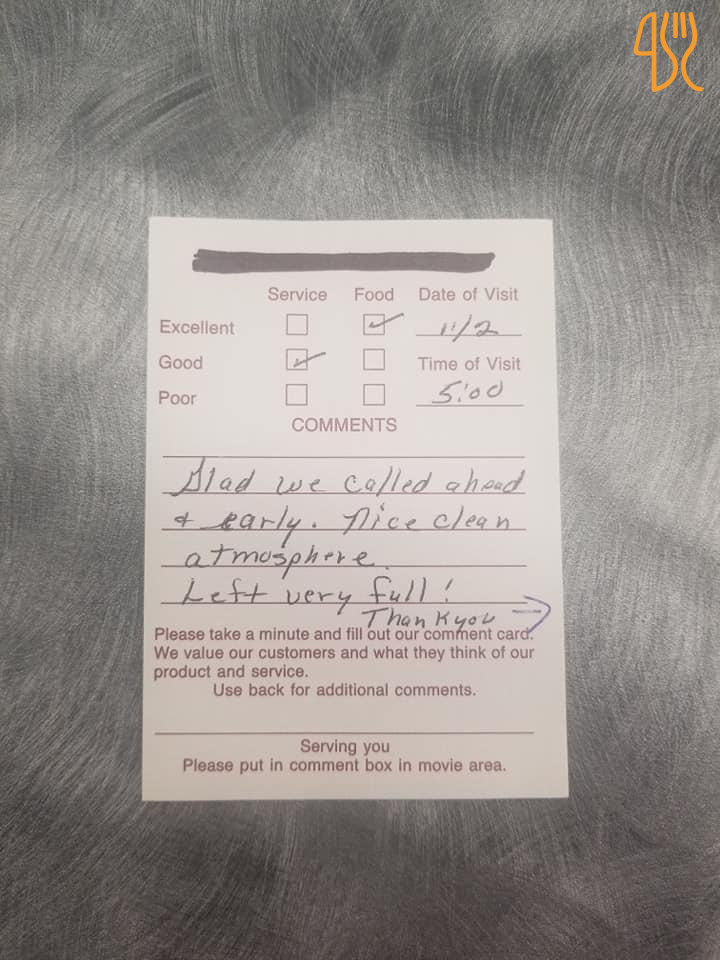 Service Food Date of Visit
Excellent 11/2
Good Time of Visit
Poor 5:00
COMMENTS
Glad we called ahead
& early. Nice clean
atmosphere.
Left very full!
Thank you
Please take a minute and fill out our comment card.
We value our customers and what they think of our
product and service.
Use back for additional comments.
Serving you
Please put in comment box in movie area.